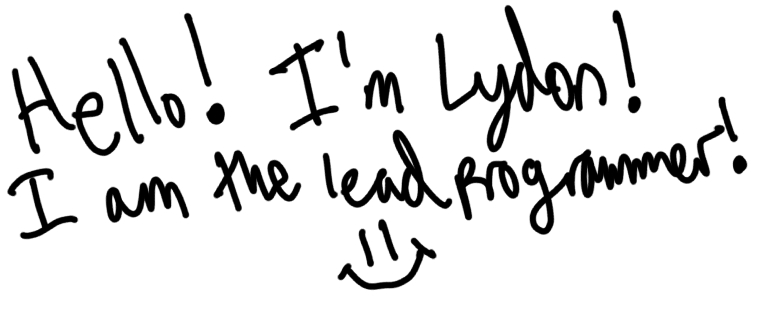 Hello! I'm Lydon!
I am the lead programmer!